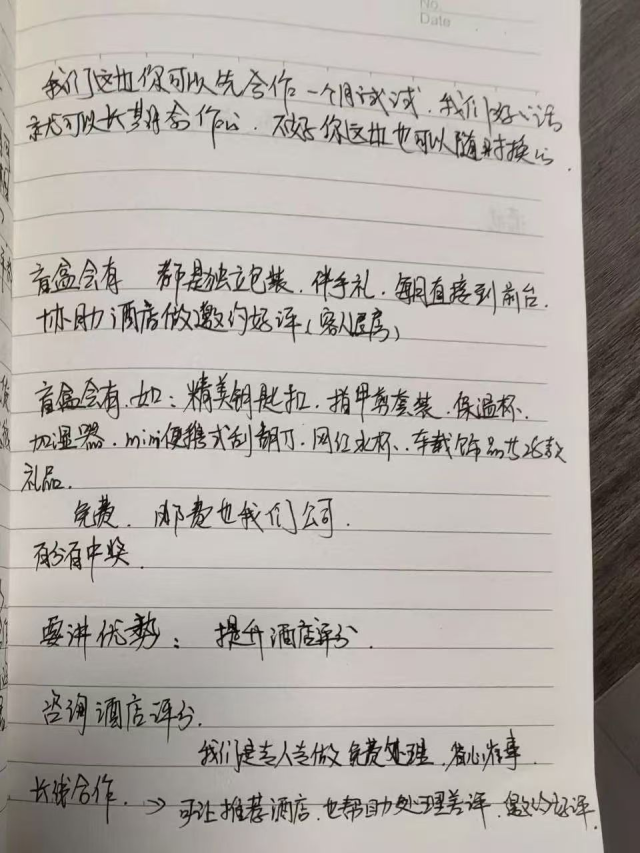 No.
Date
我们这边你可以先合作一个月试试.我们好的话
就可以长期合作的.不好你这边也可以随时换的.
盲盒会有 都是独立包装.伴手礼.每月直接到前台.
协助酒店做邀约好评(客人居房)
盲盒会有.如:精美钥匙扣.指甲剪套装.保温杯、
加湿器.mini便携式刮胡刀.网红水杯、车载饰品共28款
礼品.
免费.邮费也我们公司.
百分百中奖.
要讲优势: 提升酒店评分.
咨询酒店评分.
我们是专人专做免费处理.省心省事
长线合作. → 可让推荐酒店.也帮助处理差评.邀约好评.